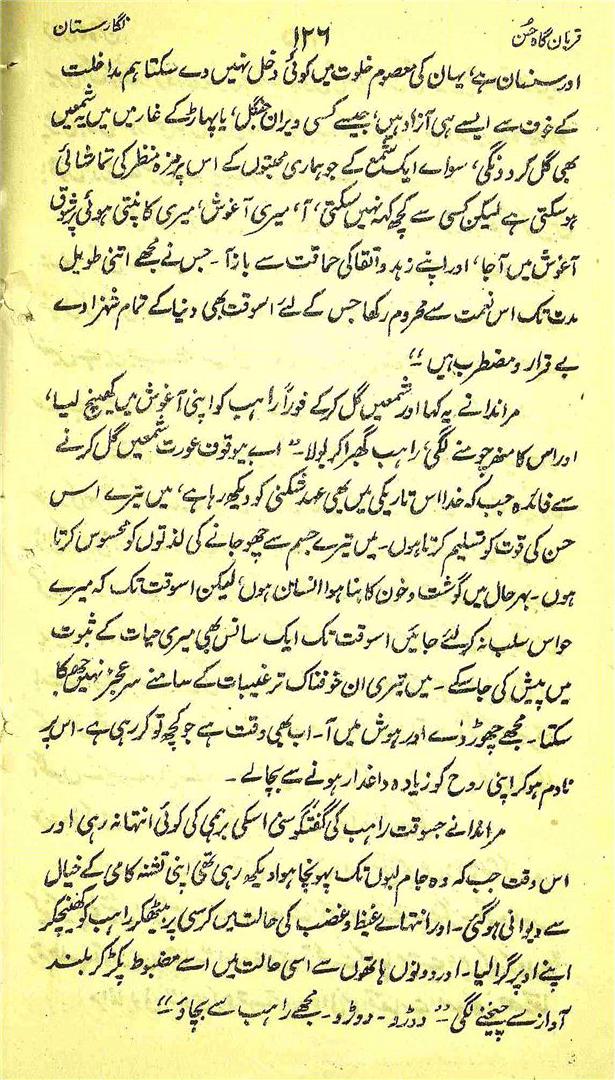 قربان گاہ حسن ۱۲۶ نگارستان
اور سنسان ہے، یہان کی معصوم خلوت میں کوئی دخل نہیں دے سکتا ہم مداخلت
کے خوف سے ایسے ہی آزاد ہیں، جیسے کسی ویران جنگل، یا پہاڑ کے غار میں میں یہ شمعیں
بھی گل کر دونگی، سواے ایک شمع کے جو ہماری محبتوں کے اس پر مزہ منظر کی تماشائی
ہو سکتی ہے لیکن کسی سے کچھ کہہ نہیں سکتی، آ، میری آغوش، میری کانپتی ہوئی پر شوق
آغوش میں آجا، اور اپنے زہد و اتقا کی حماقت سے باز آ۔ جس نے مجھے اتنی طویل
مدت تک اس نعمت سے محروم رکھا جس کے لئے اسوقت بھی دنیا کے تمام شہزادے
بے قرار و مضطرب ہیں‘‘
مرانڈا نے یہ کہا اور شمعیں گل کرکے فوراً راہب کو اپنی آغوش میں کھینچ لیا،
اور اس کا منھ چومنے لگی، راہب گھبرا کر بولا۔ ’’اے بیوقوف عورت شمعیں گل کرنے
سے فائدہ جب کہ خدا اس تاریکی میں بھی عہد شکنی کو دیکھ رہا ہے، میں تیرے اس
حسن کی قوت کو تسلیم کرتا ہوں۔ میں تیرے جسم سے چھو جانے کی لذتوں کو محسوس کرتا
ہوں۔ بہر حال میں گوشت و خون کا بنا ہوا انسان ہوں، لیکن اسوقت تک کہ میرے
حواس سلب نہ کر لئے جائیں اسوقت تک ایک سانس بھی میری حیات کے ثبوت
میں پیش کی جا سکے۔ میں تیری ان خوفناک ترغیبات کے سامنے سر عجز نہیں جھکا
سکتا۔ مجھے چھوڑ دے اور ہوش میں آ۔ اب بھی وقت ہے جو کچھ تو کر رہی ہے۔ اس پر
نادم ہو کر اپنی روح کو زیادہ داغدار ہونے سے بچالے۔
مرانڈا نے جسوقت راہب کی گفتگو سنی اسکی برہمی کی کوئی انتہا نہ رہی اور
اس وقت جب کہ وہ جام لبوں تک پہونچا ہوا دیکھ رہی تھی اپنی تشنہ کامی کے خیال
سے دیوانی ہو گئی۔ اور انتہاے غیظ و غضب کی حالت میں کرسی پر بیٹھکر راہب کو کھینچکر
اپنے اوپر گرا لیا۔ اور دونوں ہاتھوں سے اسی حالت میں اسے مضبوط پکڑ کر بلند
آواز سے چیخنے لگی’’ دوڑو۔ دوڑو۔ مجھے راہب سے بچاؤ‘‘